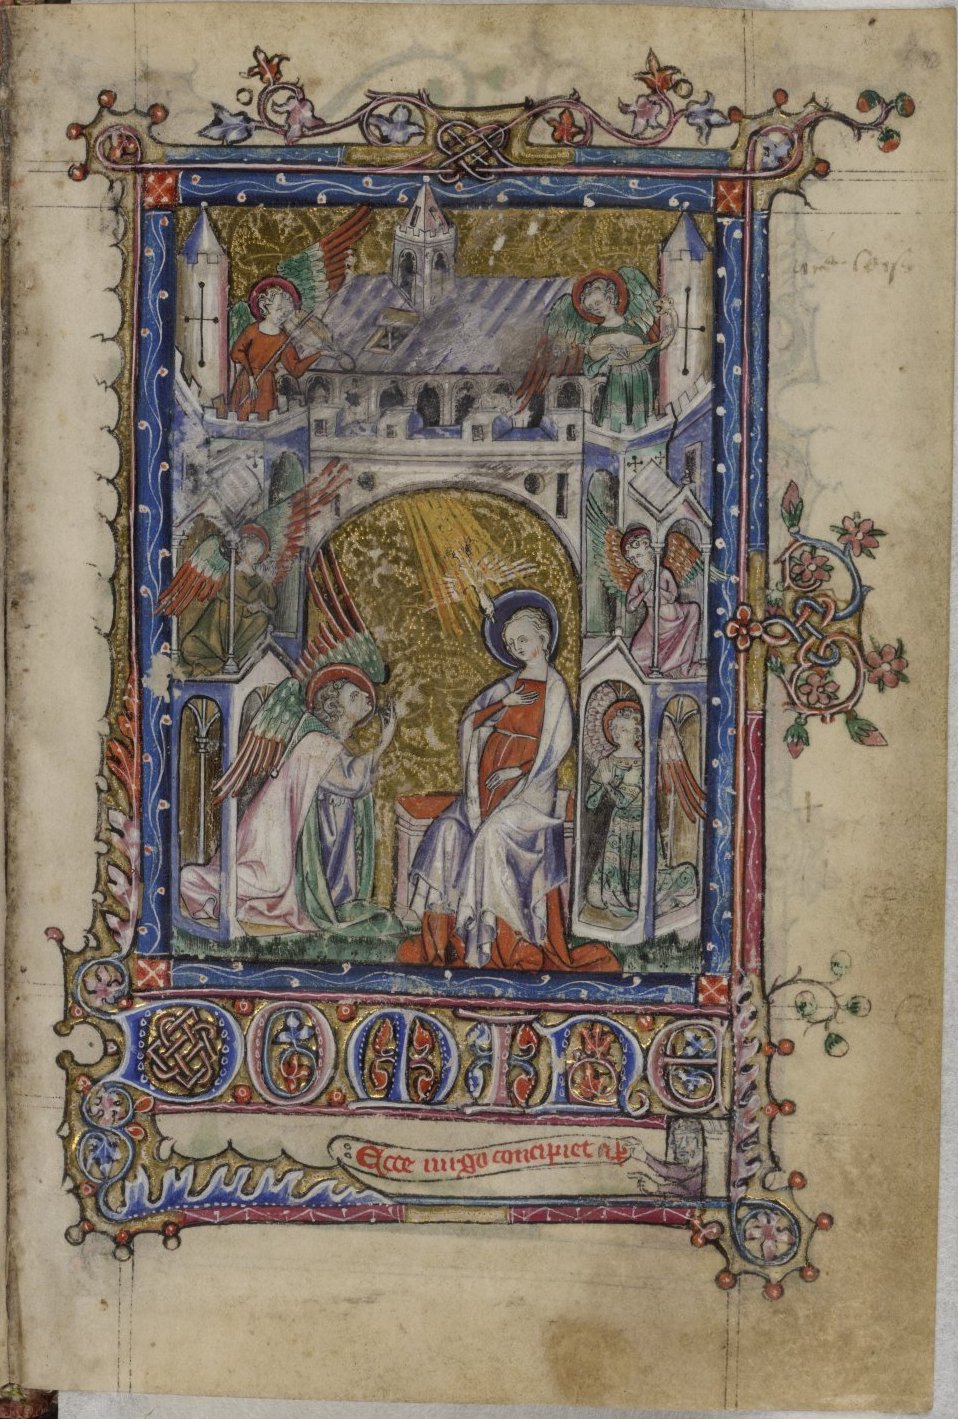 DOMINE
Ecce uirgo concipiet